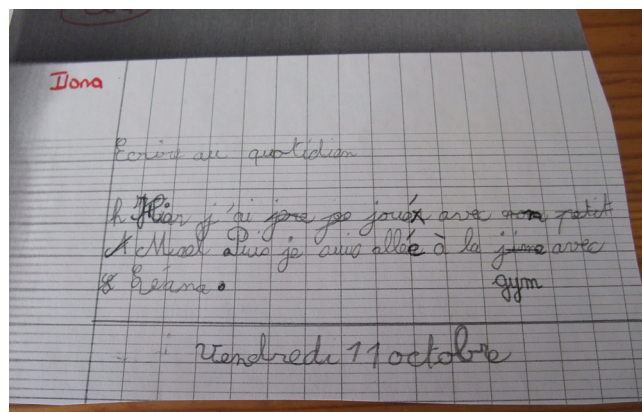 Ilona
Ecrire au quotidian
Hier j'ai joué avec mon petit
Puis je suis allée à la jime avec
Léana.
gym
Vendredi 11 octobre